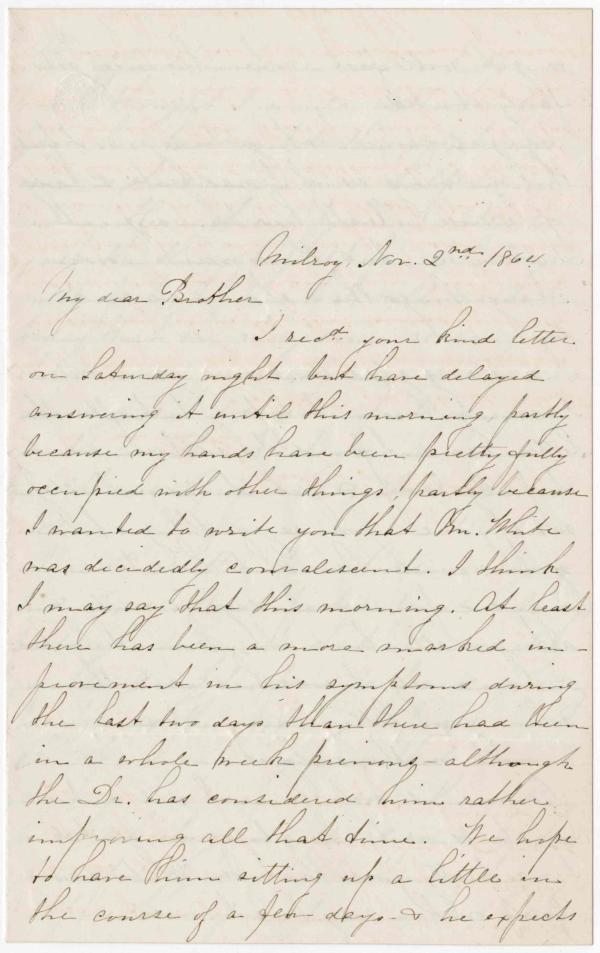 Milroy, Nov. 2nd 1864
My dear Brother
I recd. your kind letter
on Saturday night, but have delayed
answering it until this morning, partly
because my hands have been pretty fully
occupied with other things, partly because
I wanted to write you that Mr. White
was decidedly convalescent. I think
I may say that this morning. At least
there has been a more marked im-
provement in his symptoms during
the last two days than there had been
in a whole week previous - although
the Dr. has considered him rather
improving all that time. We hope
to have him sitting up a little in
the course of a few days - & he expects